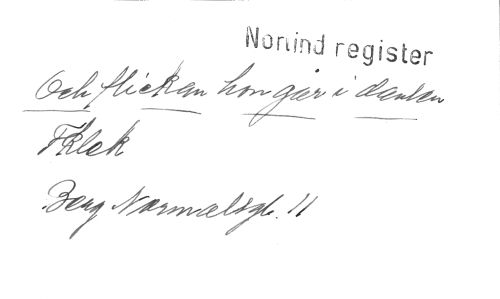 Norlind register
Och flickan hon går i dansen
Fklek
Berg Normalsgb. 11